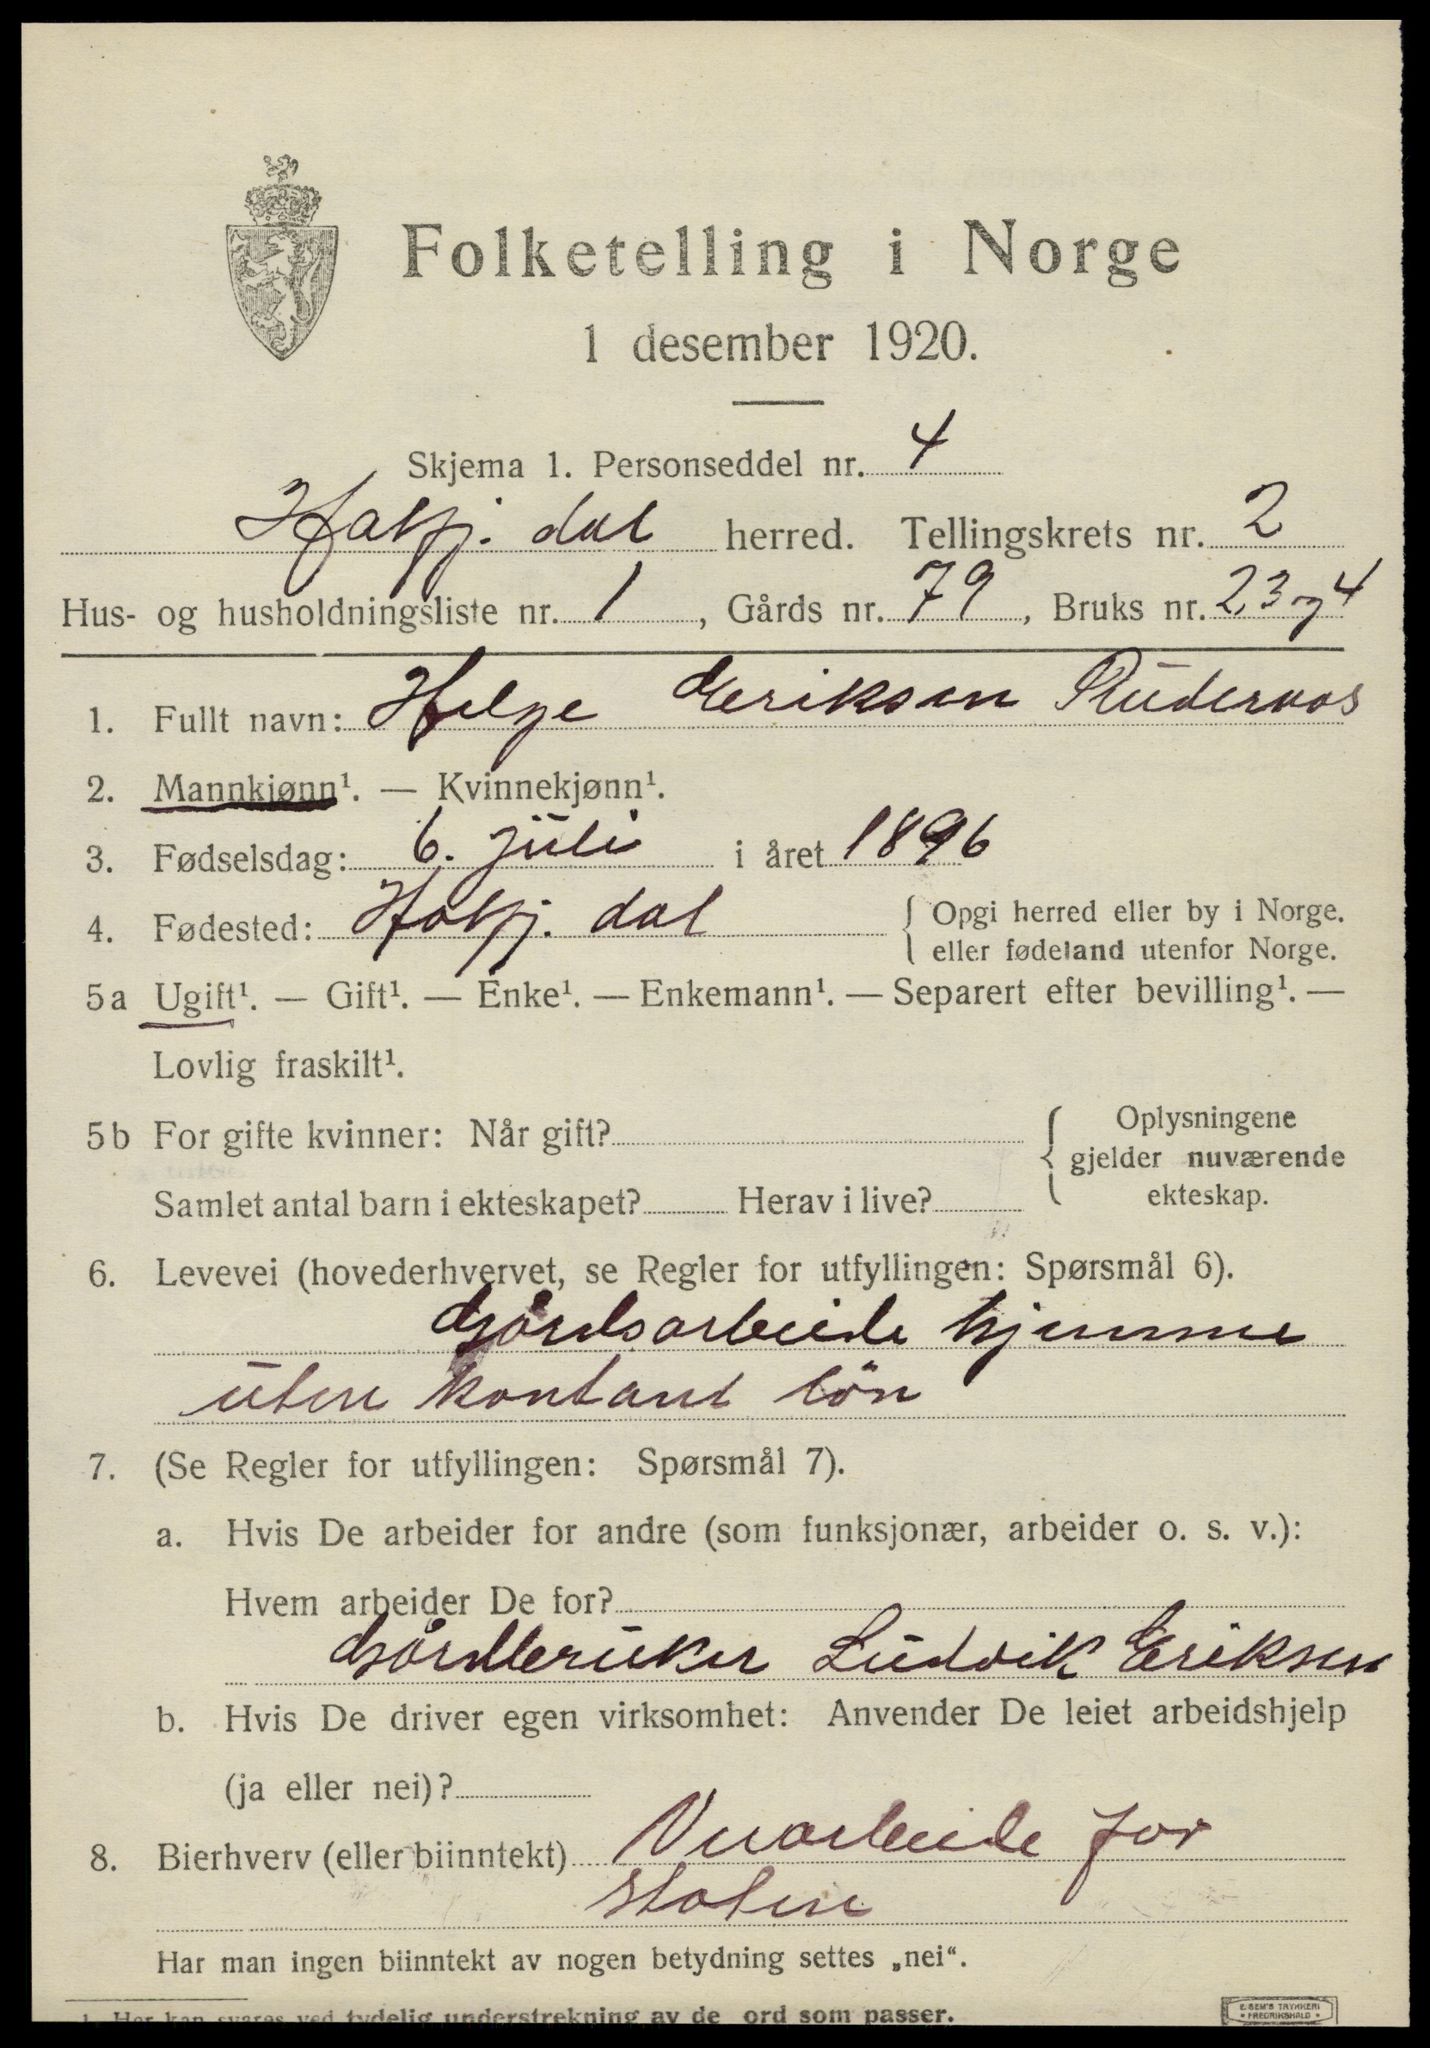 Folketelling i Norge
1 desember 1920.
Skjema 1. Personseddel nr. 4
Hatfj. dal herred. Tellingskrets nr. 2
Hus- og husholdningsliste nr. 1, Gårds nr. 79, Bruks nr. 2,3 og 4
1. Fullt navn: Helge Eriksen
2. Mannkjønn¹. — Kvinnekjønn¹.
3. Fødselsdag: 6. juli i året 1896
4. Fødested: Hatfj. dal { Opgi herred eller by i Norge.
eller fødeland utenfor Norge.
5a Ugift¹. — Gift¹. — Enke¹. — Enkemann¹. — Separert efter bevilling¹. —
Lovlig fraskilt¹.
5b For gifte kvinner: Når gift? { Oplysningene
gjelder nuværende
Samlet antal barn i ekteskapet? Herav i live? ekteskap.
6. Levevei (hovederhvervet, se Regler for utfyllingen: Spørsmål 6).
Gårdsarbeide hjemme
uten kontant lön
7. (Se Regler for utfyllingen: Spørsmål 7).
a. Hvis De arbeider for andre (som funksjonær, arbeider o. s. v.):
Hvem arbeider De for?
Gårdbruker Ludvik Eriksen
b. Hvis De driver egen virksomhet: Anvender De leiet arbeidshjelp
(ja eller nei)?
8. Bierhverv (eller biinntekt) Veiarbeide for
staten
Har man ingen biinntekt av nogen betydning settes „nei“.
1. Her kan svares ved tydelig understrekning av de ord som passer.
E. SEM'S TRYKKERI
FREDRIKSHALD